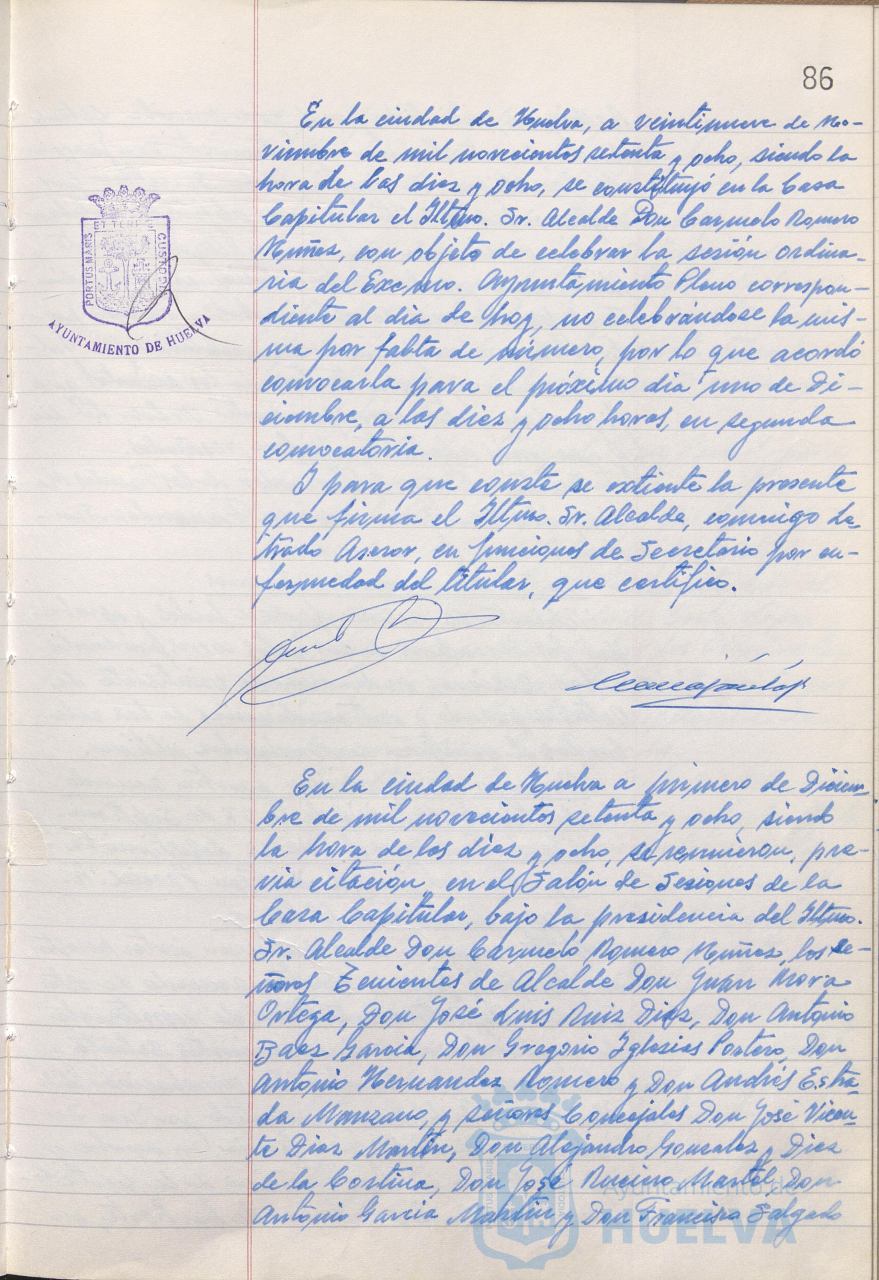 86
En la ciudad de Huelva, a veintinueve de No-
viembre de mil novecientos setenta y ocho, siendo la
hora de las diez y ocho, se constituyó en la Casa
Capitular el Iltmo. Sr. Alcalde Don Carmelo Romero
Muñoz, con objeto de celebrar la sesión ordina-
ria del Excmo. Ayuntamiento Pleno correspon-
diente al dia de hoy, no celebrándose la mis-
ma por falta de número, por lo que acordó
convocarla para el próximo dia uno de Di-
ciembre, a las diez y ocho horas, en segunda
convocatoria.
PORTUS MARIS
ET TERRE
CUSTODIA
AYUNTAMIENTO DE HUELVA
I para que conste se extiende la presente
que firma el Iltmo. Sr. Alcalde, conmigo Le-
trado Asesor, en funciones de Secretario por en-
fermedad del titular, que certifico.
En la ciudad de Huelva a primero de Diciem-
bre de mil novecientos setenta y ocho, siendo
la hora de las diez y ocho, se reunieron, pre-
via citación, en el Salón de Sesiones de la
Casa Capitular, bajo la presidencia del Iltmo.
Sr. Alcalde Don Carmelo Romero Muñoz, los se-
ñores Tenientes de Alcalde Don Juan Mora
Ortega, Don José Luis Ruiz Diaz, Don Antonio
Baez Garcia, Don Gregorio Iglesias Portero, Don
Antonio Hernandez Romero y Don Andrés Estra-
da Manzano, y señores Concejales Don José Vicen-
te Diaz Martín, Don Alejandro Gonzalez y Diez
de la Cortina, Don José Martél, Don
Antonio Garcia Martín y Don Francisco Salgado
Ayuntamiento de
HUELVA